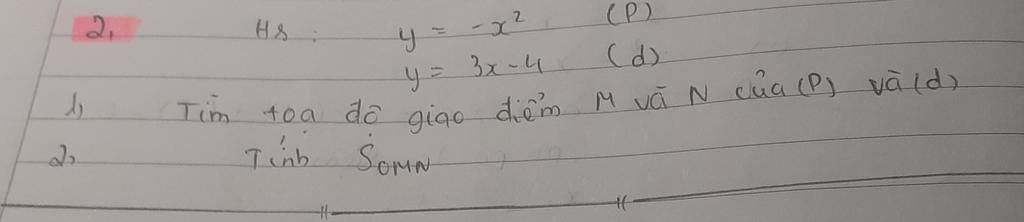 2, Hs: y = -x² (P)
y = 3x-4 (d)
1) Tìm toạ độ giao điểm M và N của (P) và (d)
2, Tính SOMN